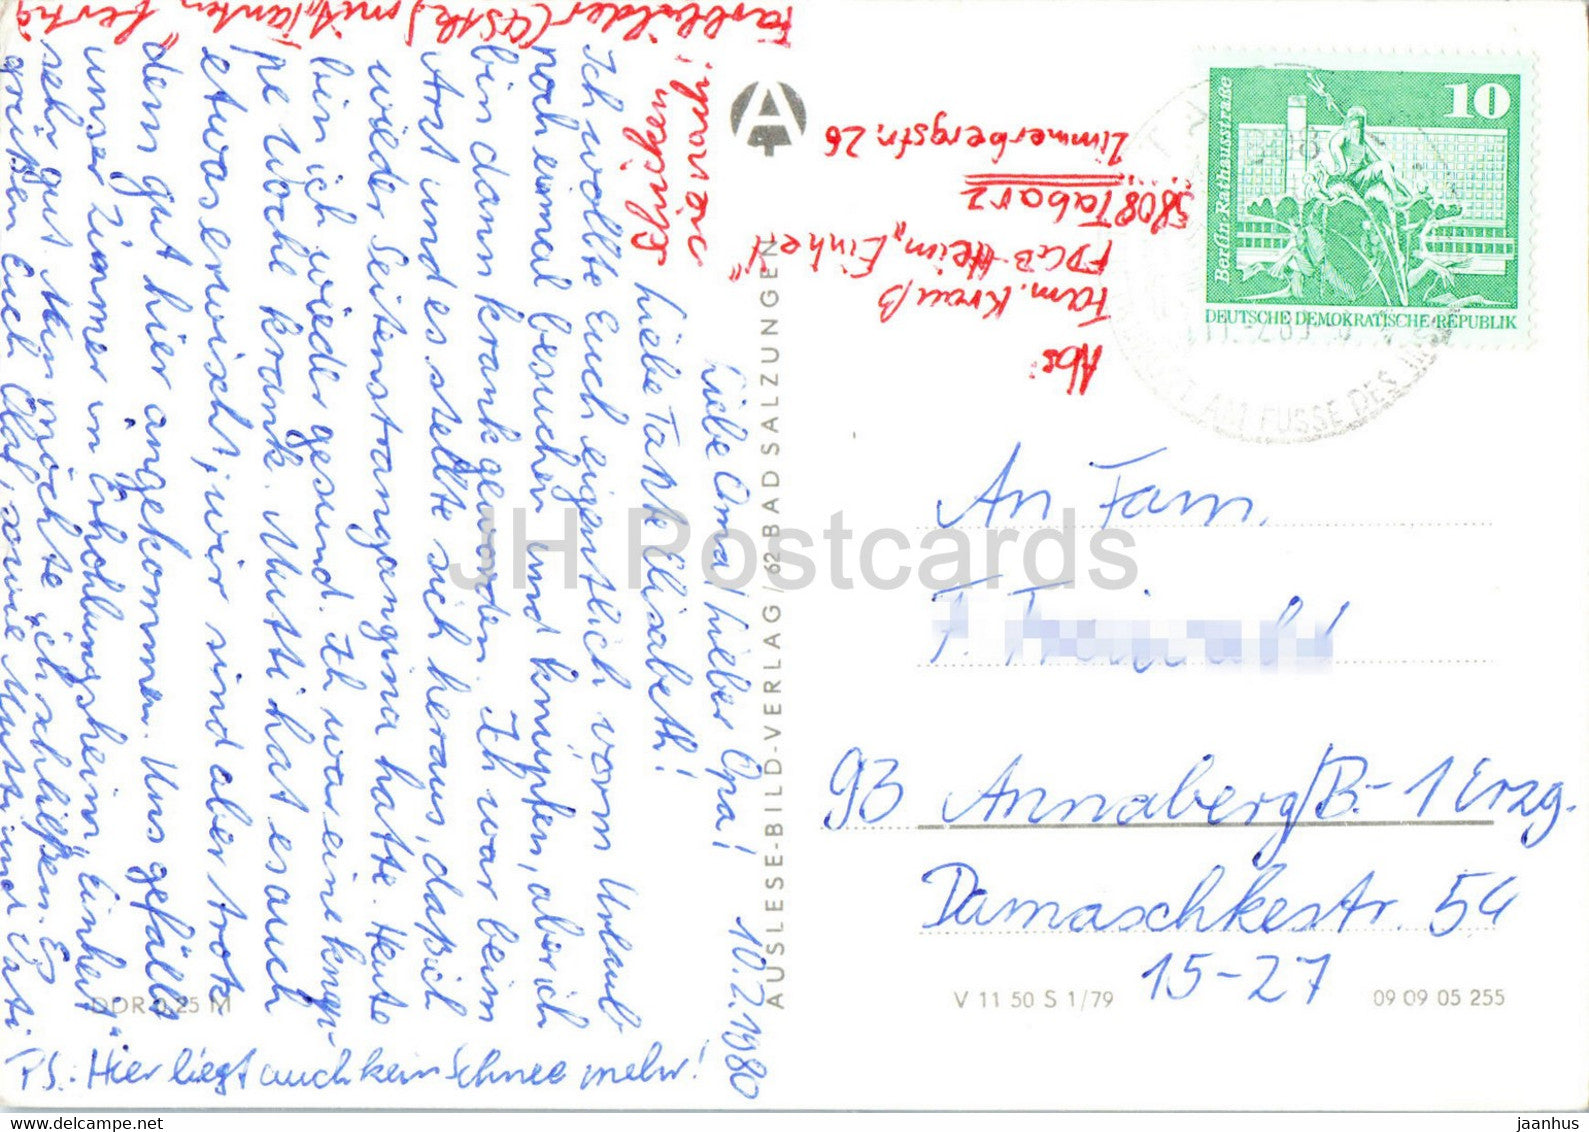 10.2.1980
Liebe Oma, lieber Opa!
Liebe Tante Elisabeth!
Ich wollte Euch eigentlich vorm Urlaub
noch einmal besuchen und knüpfen, aber ich
bin dann krank geworden. Ich war beim
Arzt und es stellte sich heraus, daß ich
wieder Seitenstrangangina hatte. Heute
bin ich wieder gesund. Ich war eine knap-
pe Woche krank. Mutti hat es auch
etwas erwischt, wir sind aber trotz
dem gut hier angekommen. Uns gefällt
unser Zimmer im Erholungsheim "Einheit"
sehr gut. Nun möchte ich schließen. Es
grüßen Euch Olaf, sowie Mutti und Vati
PS.: Hier liegt auch kein Schnee mehr!
Farbbilder (4 Stck) mit Tanten fertig
Abs:
Fam. Krauß
FDGB-Heim "Einheit"
5808 Tabarz
Zimmerbergstr. 26
A
AUSLESE-BILD-VERLAG / 62 BAD SALZUNGEN
DDR 0,25 M
V 11 50 S 1/79
09 09 05 255
10
Berlin, Rathausstraße
DEUTSCHE DEMOKRATISCHE REPUBLIK
AM FUSSE DES
An Fam.
F.
93 Annaberg/B.-1 Erzg.
Damaschkestr. 54
15-27
JH Postcards
www.delcampe.net
jaanhus